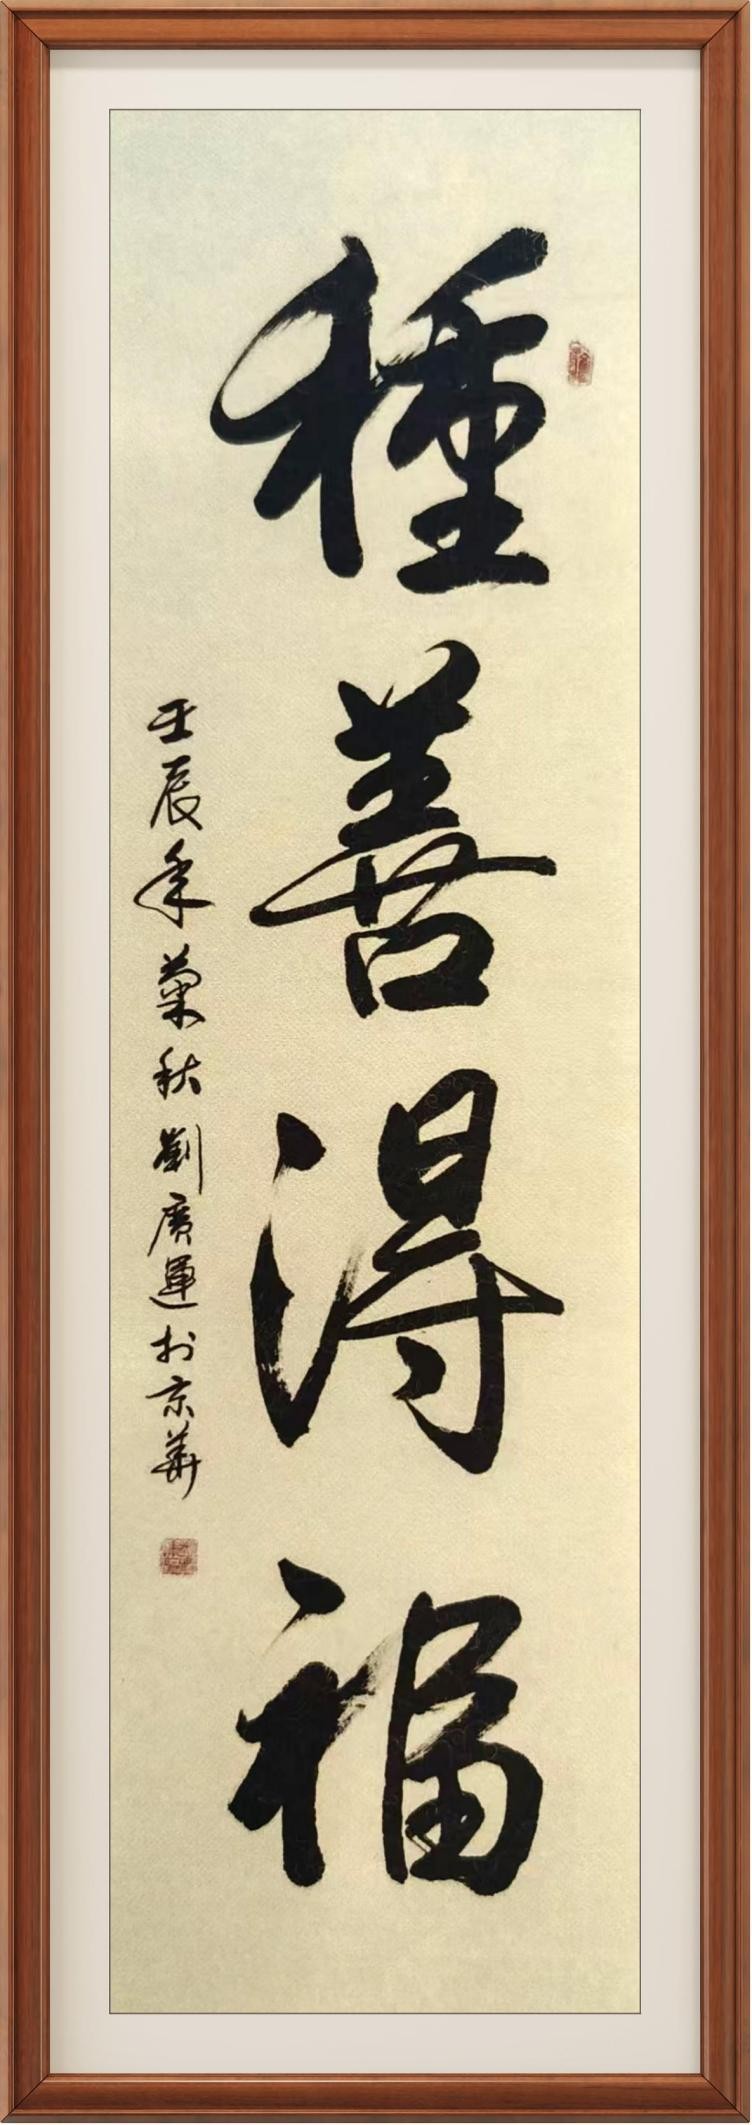 種善得福
壬辰年菊秋劉廣運於京華